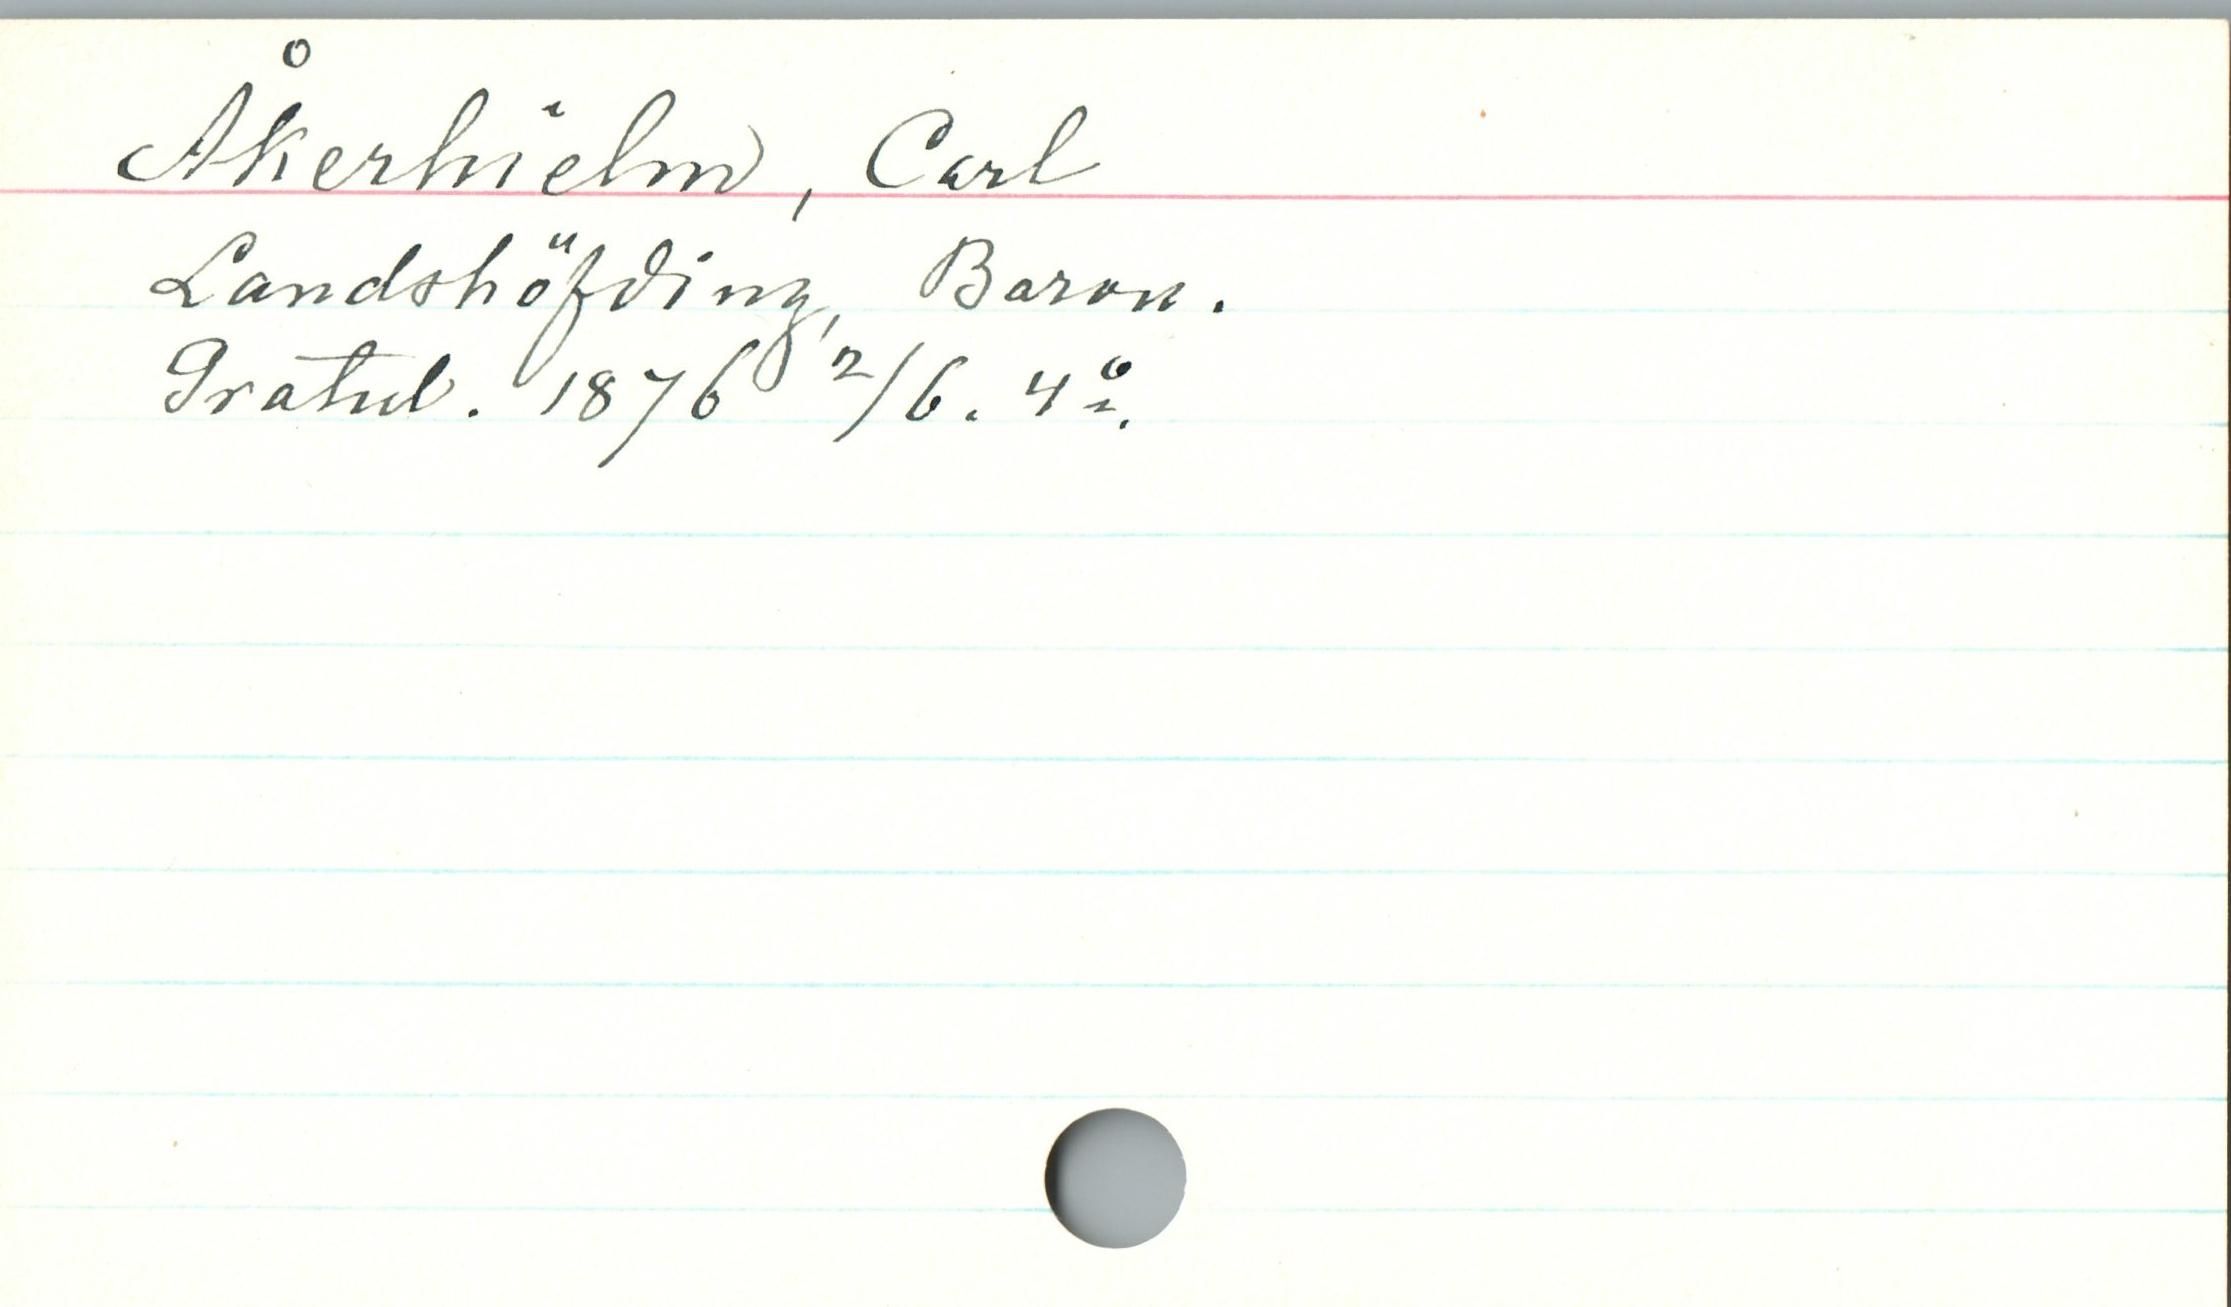 Åkerhielm, Carl
Landshöfding, Baron.
Gratul. 1876 2/6. 4º.